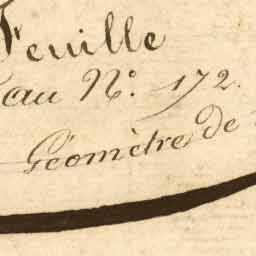 Feuille
au N.º 172.
Géomètre de